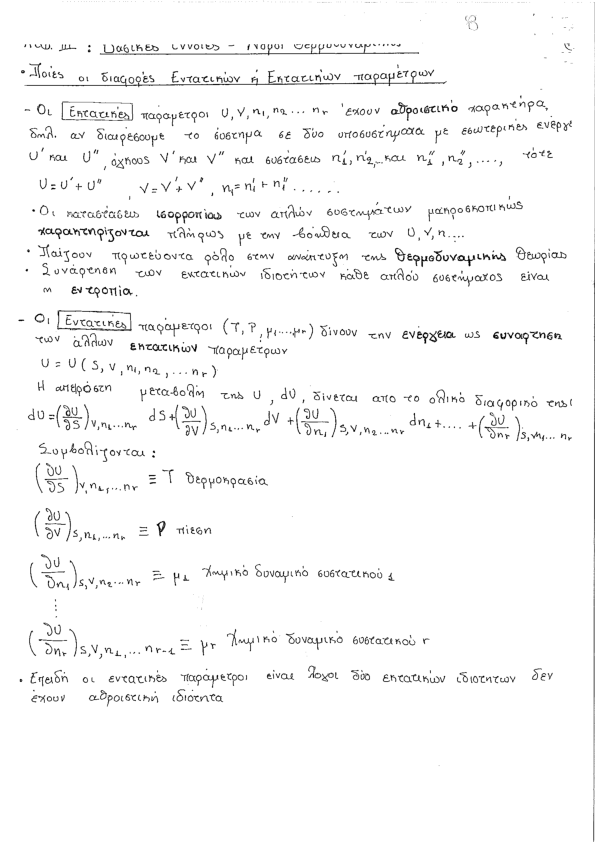 8
Κεφ. III : Βασικές έννοιες - Νόμοι Θερμοδυναμικής
• Ποιές οι διαφορές Εντατικών ή Εκτατικών παραμέτρων
- Οι Εκτατικές παράμετροι U, V, n1, n2 ... nr έχουν αθροιστικό χαρακτήρα,
δηλ. αν διαιρέσουμε το σύστημα σε δύο υποσυστήματα με εσωτερικές ενέργε
U' και U'', όγκους V' και V'' και συστάσεις n1', n2', ... και n1'', n2'', ...., τότε
U = U' + U'' , V = V' + V'' , n1 = n1' + n1'' ......
• Οι καταστάσεις ισορροπίας των απλών συστημάτων μακροσκοπικώς
χαρακτηρίζονται πλήρως με την βοήθεια των U, V, n....
• Παίζουν πρωτεύοντα ρόλο στην ανάπτυξη της θερμοδυναμικής θεωρίας
• Συνάρτηση των εκτατικών ιδιοτήτων κάθε απλού συστήματος είναι
η εντροπία.
- Οι Εντατικές παράμετροι (T, P, μ1...μr) δίνουν την ενέργεια ως συναρτηση
των άλλων εκτατικών παραμέτρων
U = U (S, V, n1, n2, ... nr)
Η απειροστή μεταβολή της U, dU, δίνεται απο το ολικό διαφορικό της:
dU = (∂U/∂S)V,n1...nr dS + (∂U/∂V)S,n1...nr dV + (∂U/∂n1)S,V,n2...nr dn1 + .... + (∂U/∂nr)S,V,n1...nr
Συμβολίζονται :
(∂U/∂S)V,n1,...nr ≡ T θερμοκρασία
(∂U/∂V)S,n1,...nr ≡ P πίεση
(∂U/∂n1)S,V,n2...nr ≡ μ1 χημικό δυναμικό συστατικού 1
⋮
(∂U/∂nr)S,V,n1,...nr-1 ≡ μr χημικό δυναμικό συστατικού r
• Επειδή οι εντατικές παράμετροι είναι λόγοι δύο εκτατικών ιδιοτήτων δεν
έχουν αθροιστική ιδιότητα